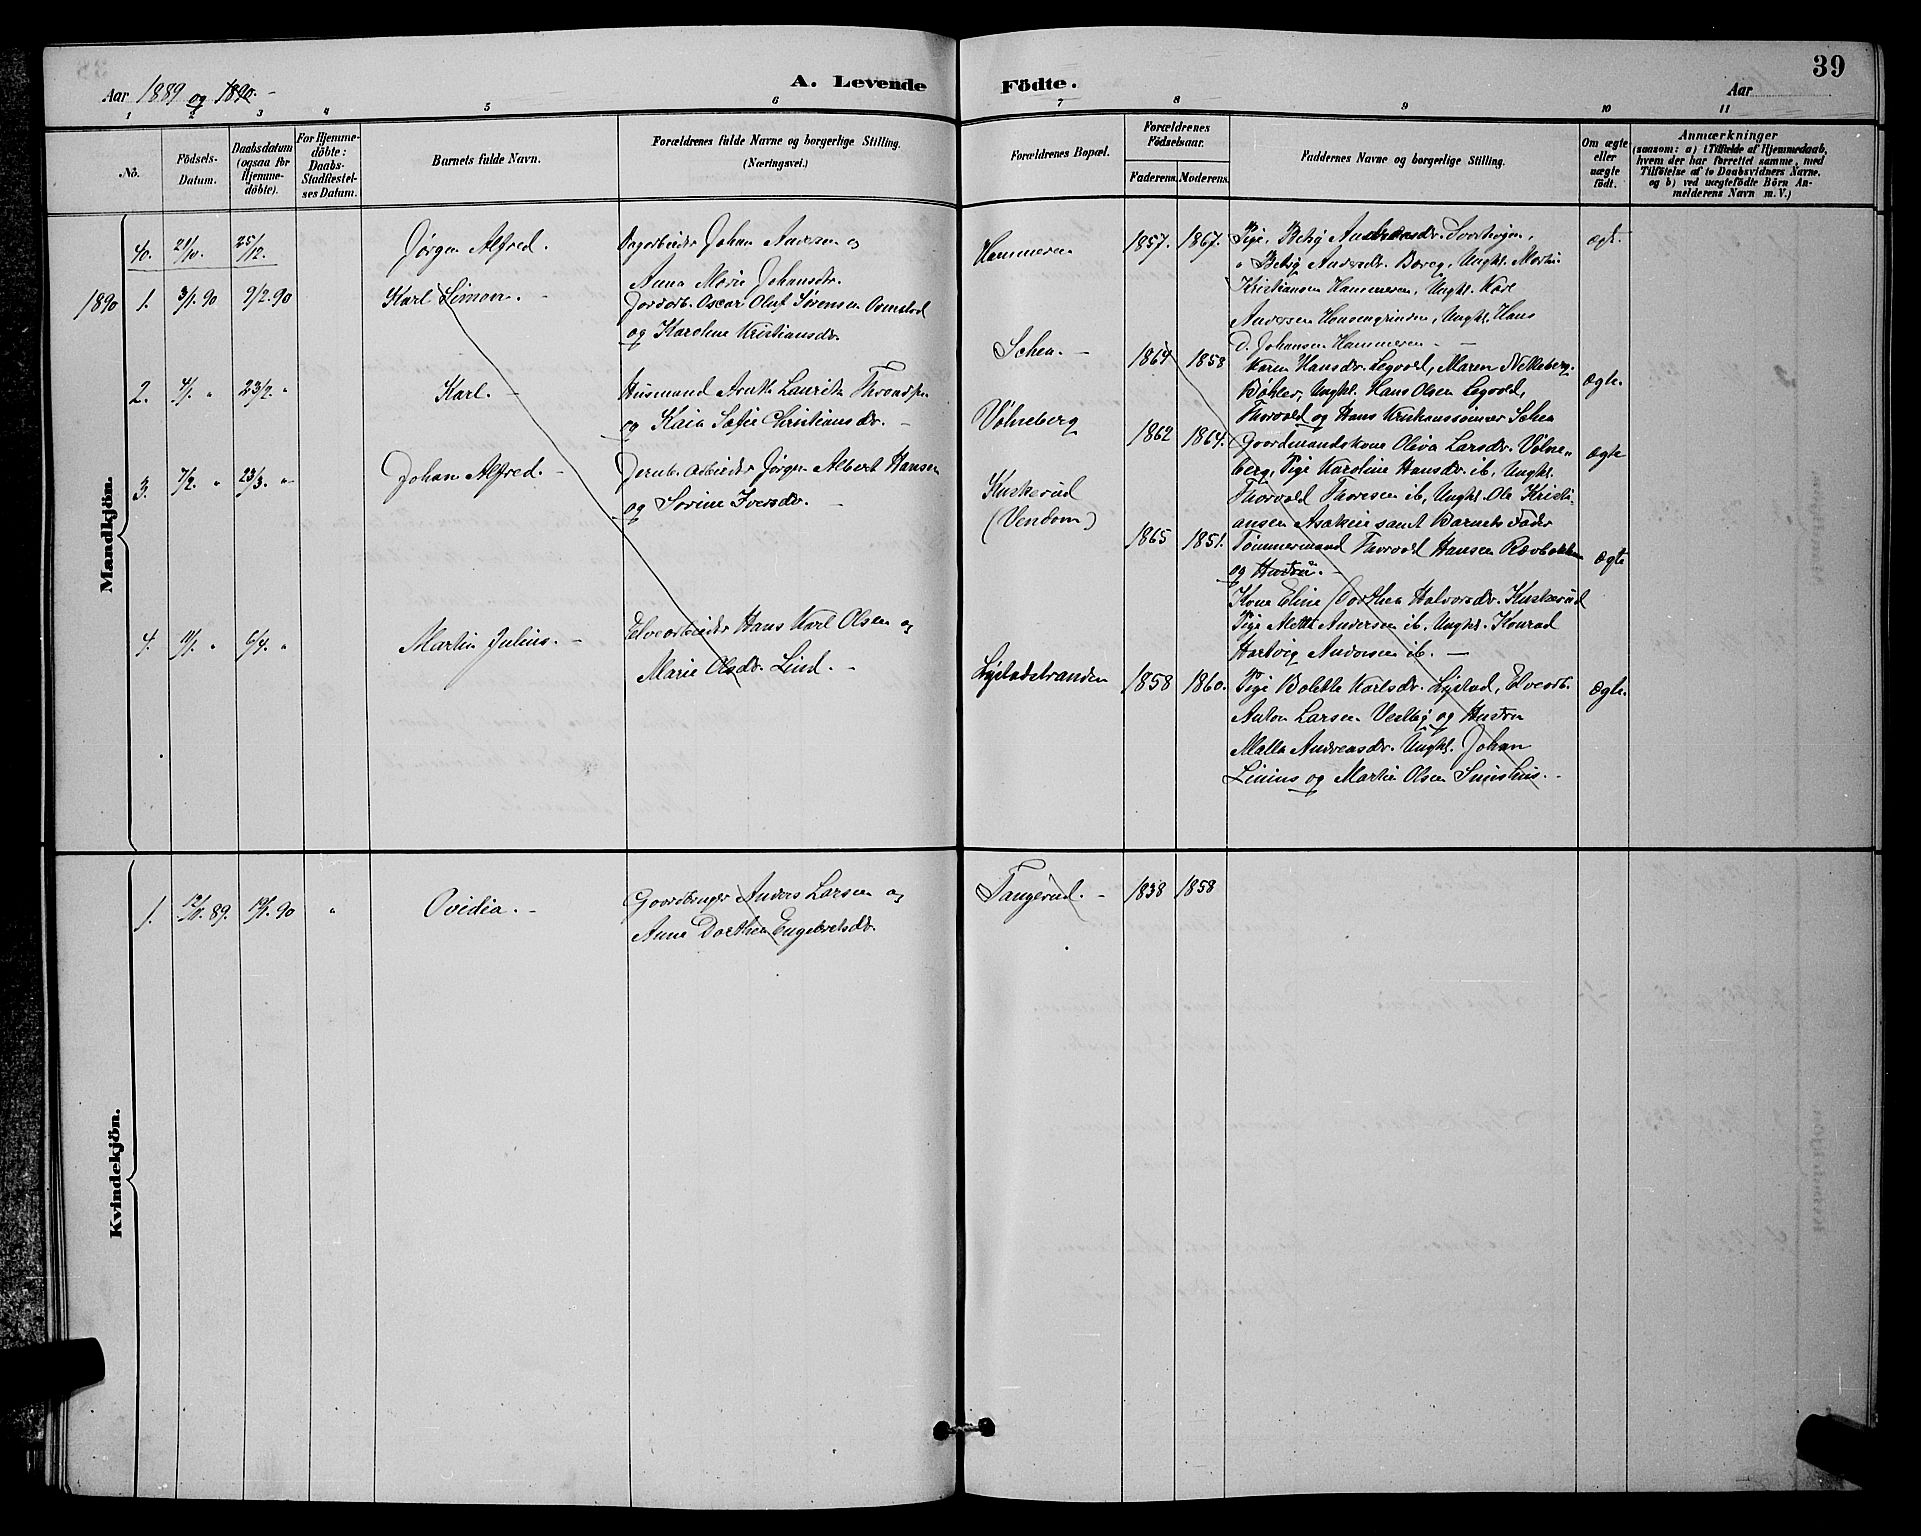 39
Aar 1889 og 1890.
A. Levende Födte.
Aar
1 2 3 4 5 6 7 8 9 10 11
No.
Födsels-
Datum.
Daabsdatum
(ogsaa for
Hjemme-
döbte).
For Hjemme-
döbte:
Daabs-
Stadfæstel-
ses Datum.
Barnets fulde Navn.
Forældrenes fulde Navne og borgerlige Stilling.
(Næringsvei.)
Forældrenes Bopæl.
Forældrenes
Födselsaar.
Faderens. Moderens.
Faddernes Navne og borgerlige Stilling.
Om ægte
eller
uægte
födt.
Anmærkninger
(saasom: a) i Tilfælde af Hjemmedaab,
hvem der har forrettet samme, med
Tilföielse af to Daabsvidners Navne.
og b) ved uægtefödte Börn An-
melderens Navn m. V.)
Mandkjön.
40. 21/10. 25/12. Jørgen Alfred.
Dagarbeider Johan Andersen og
Anna Marie Johansdr.
Hammeren 1857. 1867.
Pige, Betzy Andreasdr. Svorhogen,
" Betzy Andersdr. Bareg, Ungkl. Martin
Kristiansen Hammeren, Ungkl. Karl
Andersen Honsengrinden, Ungkl. Hans
D. Johansen Hammeren -
ægt.
1890 1. 3/1. 90 9/2. 90 Karl Simon. -
Jordarb. Oscar Oluf Sørensen Osmstad
og Karoline Kristiansdr.
Schea. - 1864 1858
Karen Hansdr. Legvold, Maren Nekkeberg-
Bøhler, Ungkl. Hans Olsen Legvold,
Thorvald og Hans Kristianssønner Schea
ægte.
2. 4/1. " 23/2. " Karl. -
Husmand Arnth Lauritz Throndsen
og Kaia Sofie Christiansdr. -
Vølneberg 1862 1864.
Gaardmandskone Oliva Larsdr. Vølne-
berg, Pige Karoline Hansdr. ib, Ungkl.
Thorvald Thoresen ib, Ungkl. Ole Kristi-
ansen Asakeie samt Barnets Fader
ægte
3. 7/2. " 23/3. " Johan Alfred. -
Jernb. arbeider Jørgen Albert Hansen
og Sørine Iversdr. -
Kuskerud
(Vendom) 1865 1851.
Tømmermand Thorvald Hansen Rævbakken
og Hustru. -
Kone Eline Dorthea Halvorsdr. Kuskerud
Pige Mette Andersen ib. Ungkl. Konrad
Hartvig Andersen ib. -
ægte
4. 11/1. " 6/4. " Martin Julius. -
Elvearbeider Hans Karl Olsen og
Marie Olsdr. Lind. -
Lystadstranden 1858 1860.
Pige Bolette Karlsdr. Lystad, Elvearb.
Anton Larsen Vestby og Hustru
Malla Andreasdr. Ungkl. Johan
Linius og Martin Olsen Snishus. -
Ægte.
Kvindekjön.
1. 12/10. 89. 19/1. 90 " Ovidia. -
Gaardbruger Anders Larsen og
Anne Dorthea Engebretsdr.
Tangerud. - 1838 1858